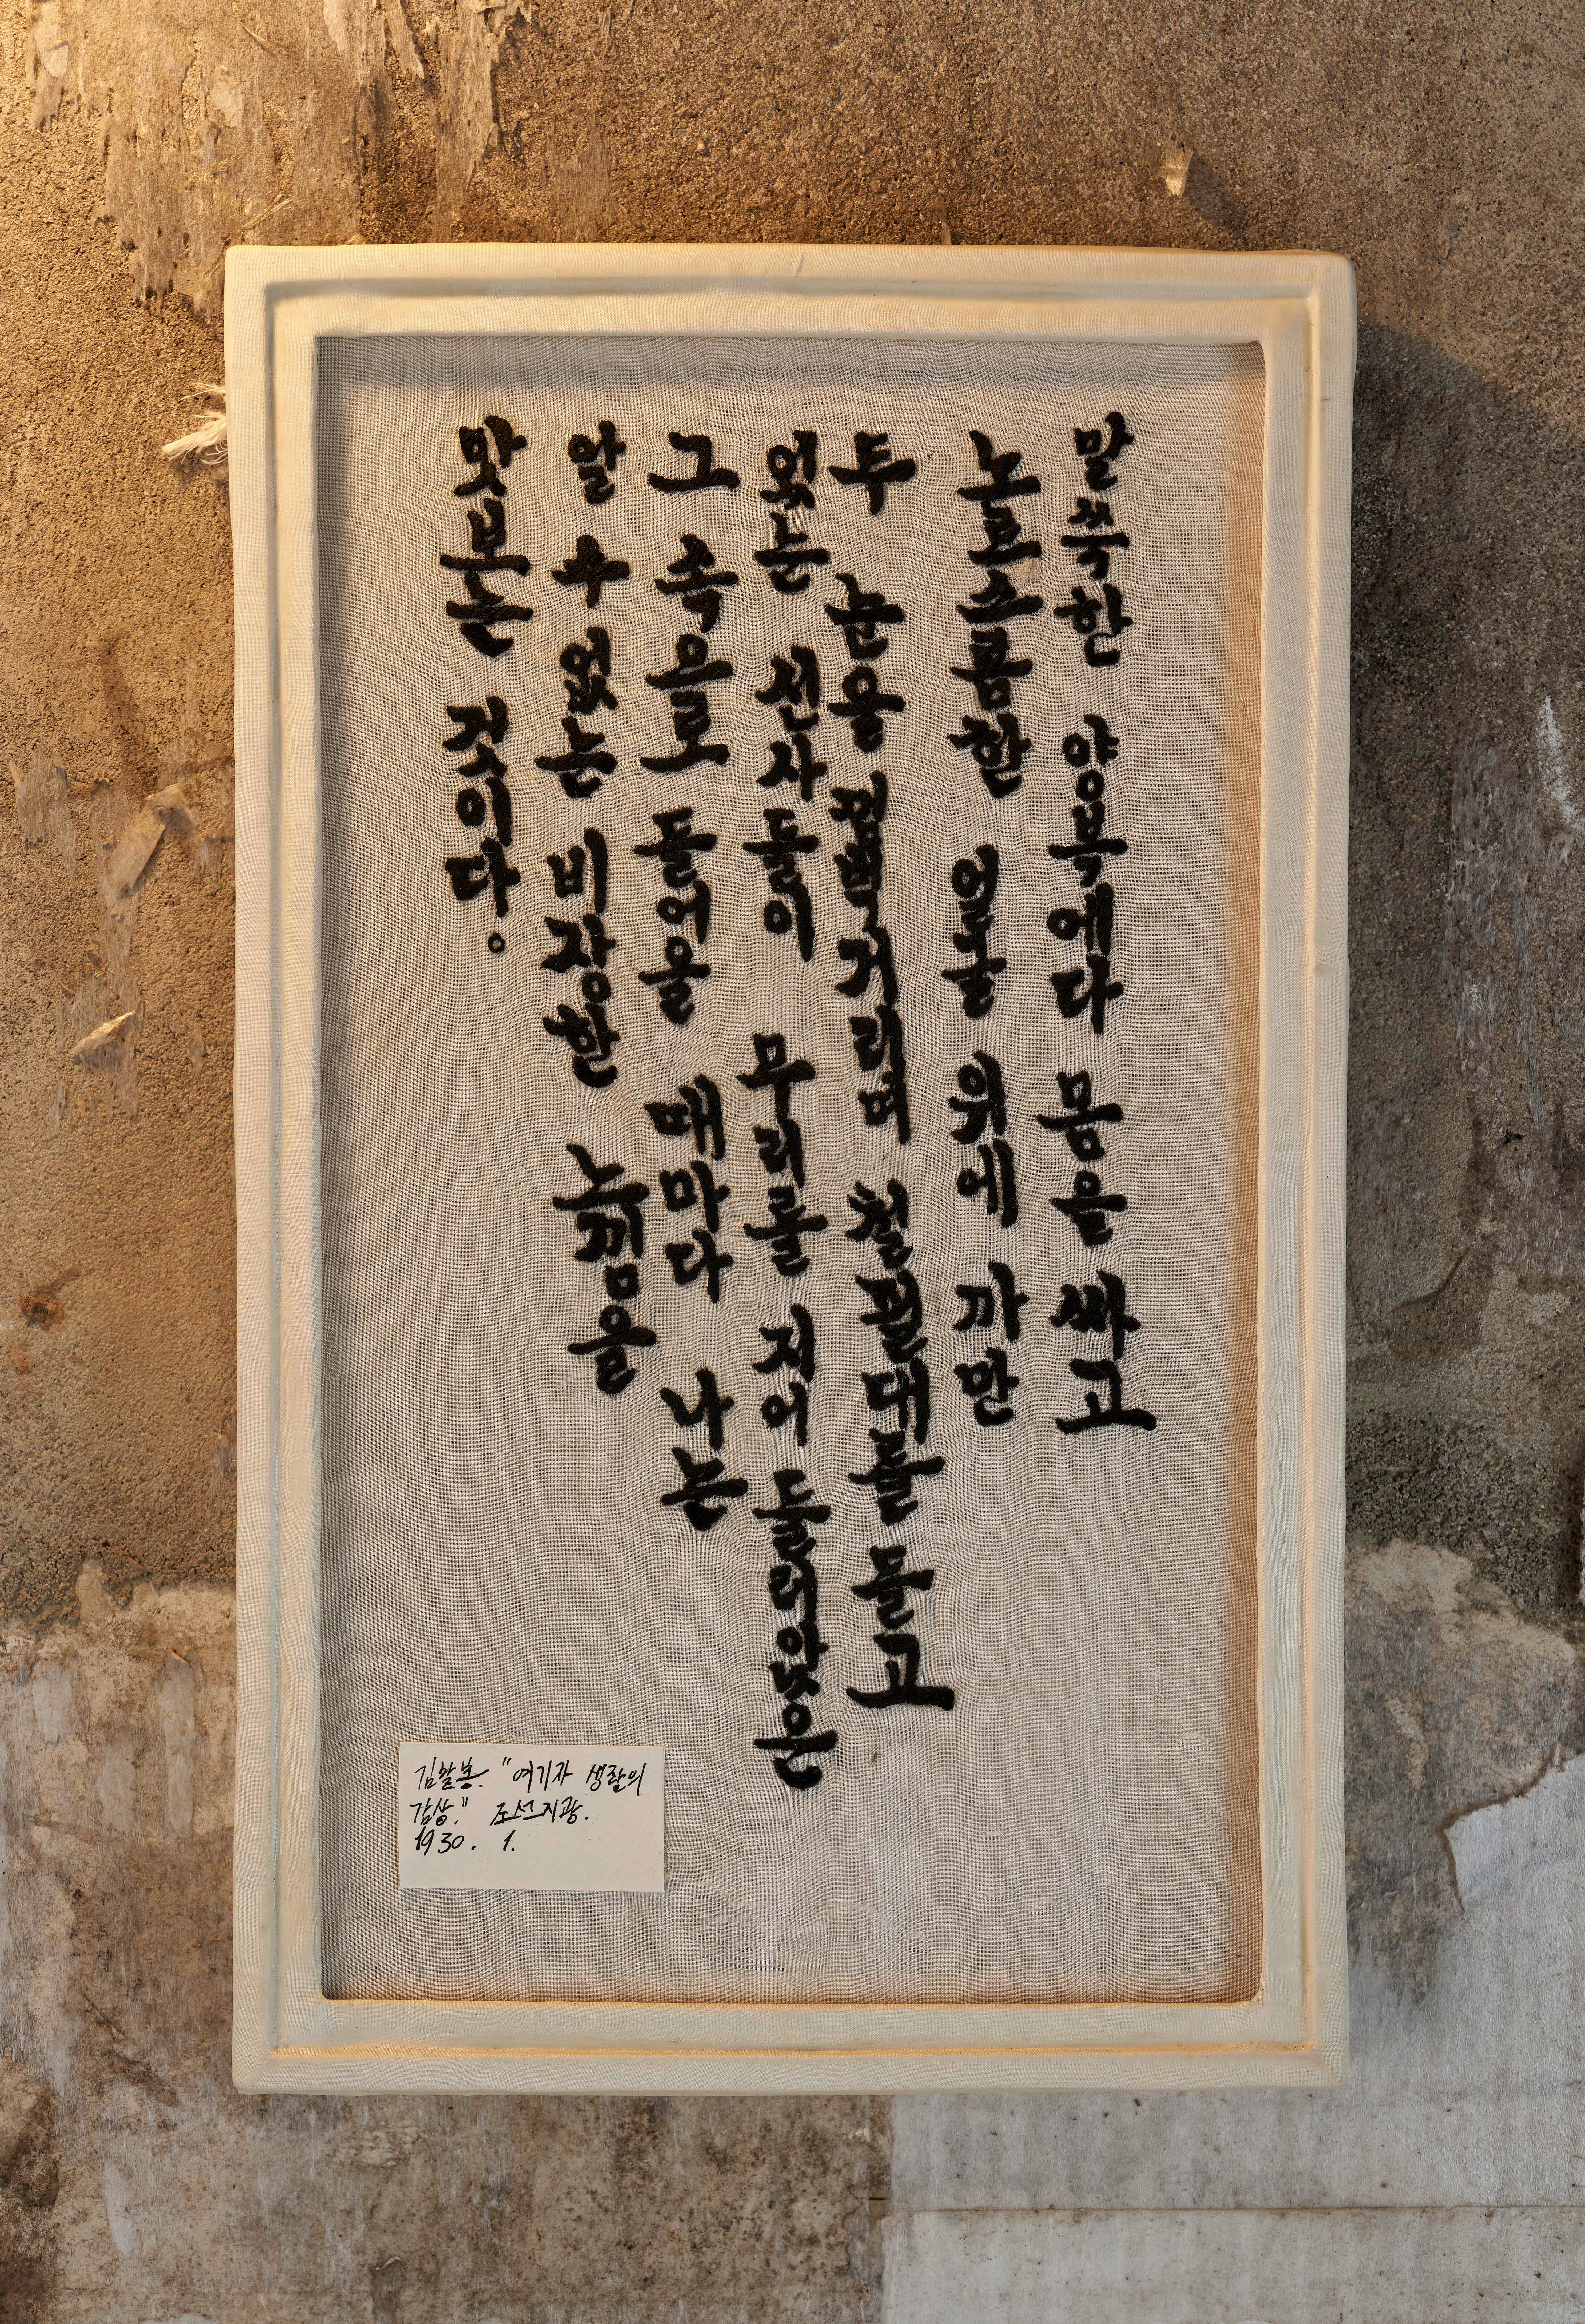 말쑥한 양복에다 몸을 싸고
노르스름한 얼굴 위에 까만
두 눈을 껌벅거리며 철필대를 들고
있는 신사들이 무리를 지어 둘러앉은
그 속으로 들어올 때마다 나는
알 수 없는 비장한 느낌을
맛보는 것이다.
김활봉. "여기자 생활의
감상." 조선지광.
1930. 1.